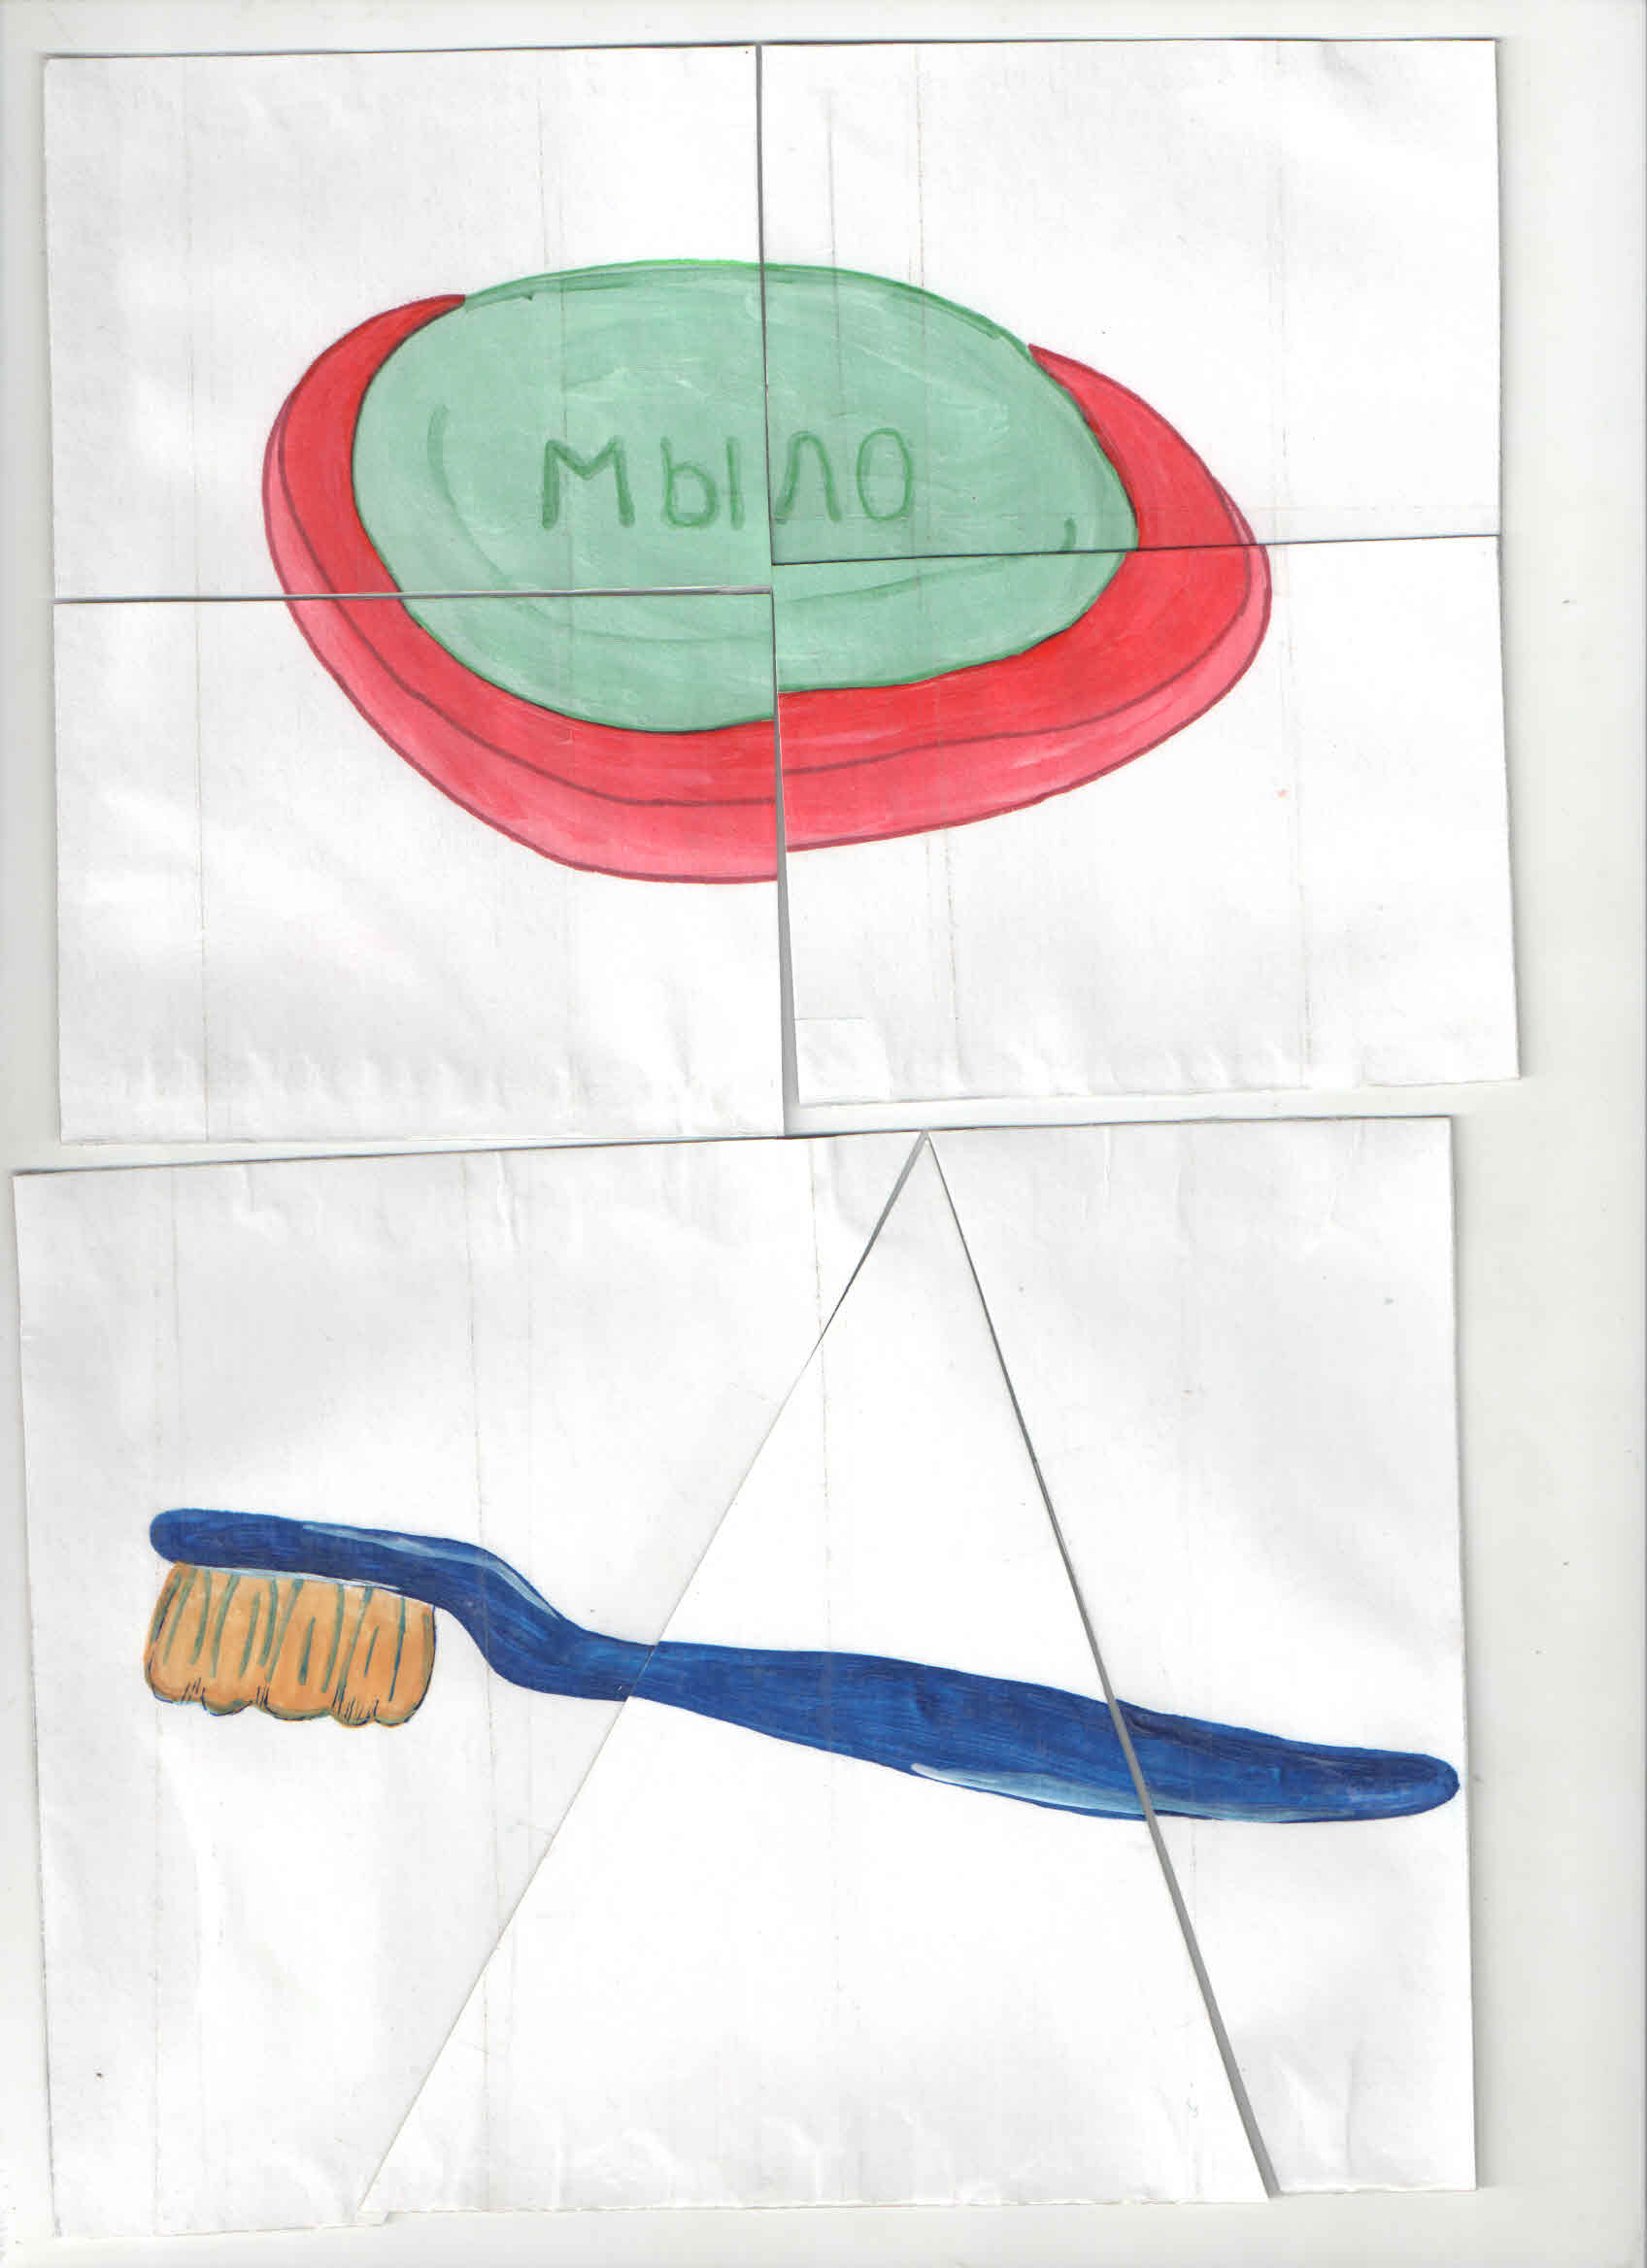 мыло